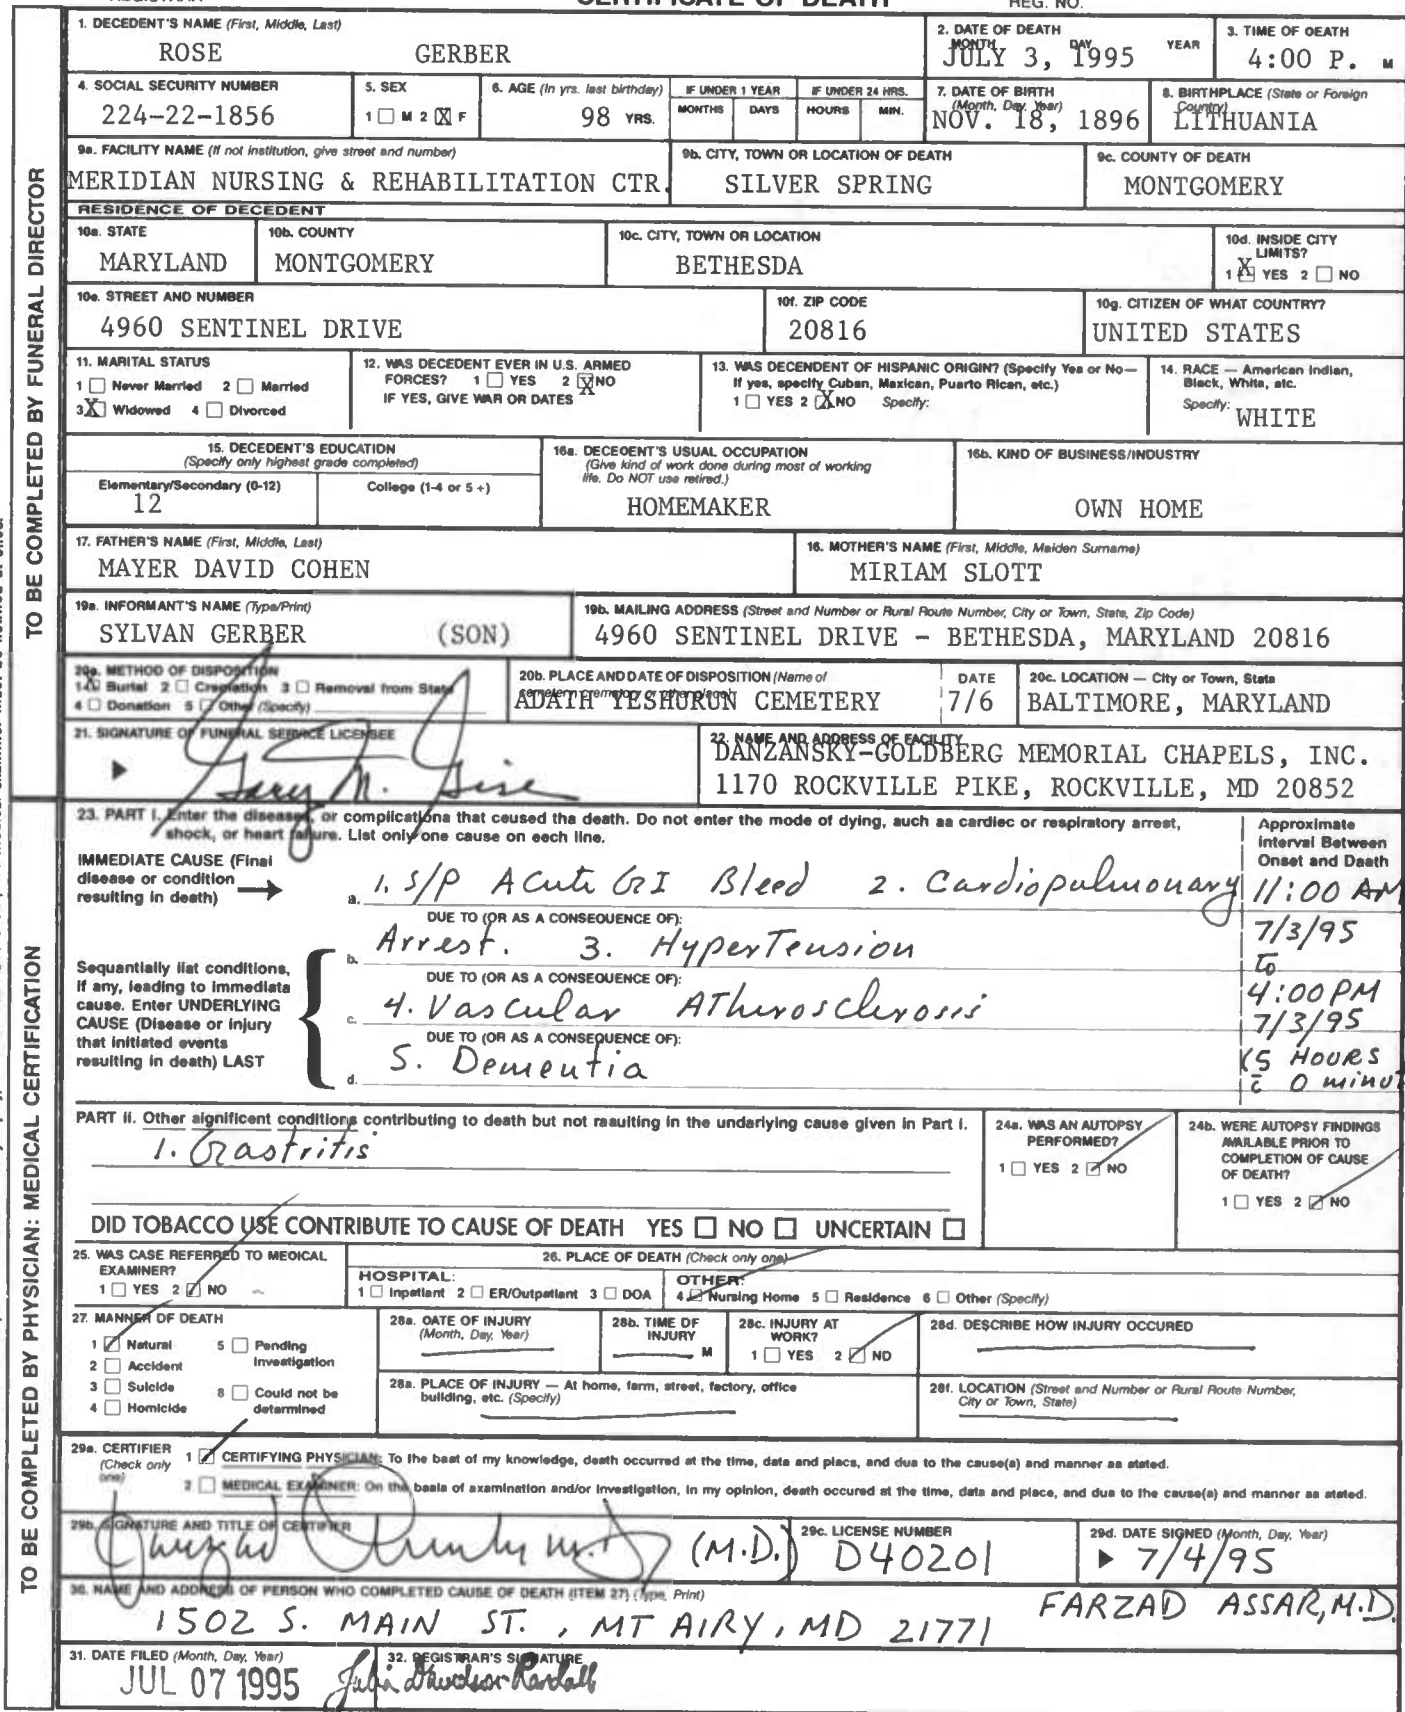 CERTIFICATE OF DEATH
REG. NO.
TO BE COMPLETED BY FUNERAL DIRECTOR
1. DECEDENT'S NAME (First, Middle, Last)
ROSE GERBER
2. DATE OF DEATH
MONTH DAY YEAR
JULY 3, 1995
3. TIME OF OEATH
4:00 P. M
4. SOCIAL SECURITY NUMBER
224-22-1856
5. SEX
1 ☐ M 2 ☒ F
6. AGE (In yrs. last birthday)
98 YRS.
IF UNDER 1 YEAR
MONTHS DAYS
IF UNDER 24 HRS.
HOURS MIN.
7. DATE OF BIRTH
(Month, Day, Year)
NOV. 18, 1896
8. BIRTHPLACE (State or Foreign
Country)
LITHUANIA
9a. FACILITY NAME (If not institution, give street and number)
MERIDIAN NURSING & REHABILITATION CTR.
9b. CITY, TOWN OR LOCATION OF DEATH
SILVER SPRING
9c. COUNTY OF DEATH
MONTGOMERY
RESIDENCE OF DECEDENT
10a. STATE
MARYLAND
10b. COUNTY
MONTGOMERY
10c. CITY, TOWN OR LOCATION
BETHESDA
10d. INSIDE CITY
LIMITS?
1 ☒ YES 2 ☐ NO
10e. STREET AND NUMBER
4960 SENTINEL DRIVE
10f. ZIP CODE
20816
10g. CITIZEN OF WHAT COUNTRY?
UNITED STATES
11. MARITAL STATUS
1 ☐ Never Married 2 ☐ Married
3 ☒ Widowed 4 ☐ Divorced
12. WAS DECEDENT EVER IN U.S. ARMED
FORCES? 1 ☐ YES 2 ☒ NO
IF YES, GIVE WAR OR DATES
13. WAS DECENDENT OF HISPANIC ORIGIN? (Specify Yes or No—
If yes, specify Cuban, Maxican, Puarto Rican, etc.)
1 ☐ YES 2 ☒ NO Specify:
14. RACE — American Indian,
Black, White, atc.
Specify: WHITE
15. DECEDENT'S EDUCATION
(Specify only highest grade completed)
Elementary/Secondary (0-12)
12
College (1-4 or 5 +)
16a. DECEOENT'S USUAL OCCUPATION
(Give kind of work done during most of working
life. Do NOT use retired.)
HOMEMAKER
16b. KIND OF BUSINESS/INDUSTRY
OWN HOME
17. FATHER'S NAME (First, Middle, Last)
MAYER DAVID COHEN
16. MOTHER'S NAME (First, Middle, Maiden Surname)
MIRIAM SLOTT
19a. INFORMANT'S NAME (Type/Print)
SYLVAN GERBER (SON)
19b. MAILING ADDRESS (Street and Number or Rural Route Number, City or Town, State, Zip Code)
4960 SENTINEL DRIVE - BETHESDA, MARYLAND 20816
20a. METHOD OF DISPOSITION
1 ☒ Burial 2 ☐ Cremation 3 ☐ Removal from State
4 ☐ Donation 5 ☐ Other (Specify)
20b. PLACE AND DATE OF DISPOSITION (Name of
cemetery, crematory or other place)
ADATH YESHURUN CEMETERY
DATE
7/6
20c. LOCATION — City or Town, Stata
BALTIMORE, MARYLAND
21. SIGNATURE OF FUNERAL SERVICE LICENSEE
Gary M. Gise
22. NAME AND ADDRESS OF FACILITY
DANZANSKY-GOLDBERG MEMORIAL CHAPELS, INC.
1170 ROCKVILLE PIKE, ROCKVILLE, MD 20852
TO BE COMPLETED BY PHYSICIAN: MEDICAL CERTIFICATION
23. PART I. Enter the diseases, or complications that ceused tha death. Do not enter the mode of dying, such aa cardiec or respiratory arrest,
shock, or heart failure. List only one cause on eech line.
Approximate
Interval Between
Onset and Daath
IMMEDIATE CAUSE (Final
disease or condition
resulting in death)
a. 1. S/P Acute GI Bleed 2. Cardiopulmonary
11:00 AM
DUE TO (OR AS A CONSEOUENCE OF):
b. Arrest. 3. Hypertension
7/3/95
to
Sequantially list conditions,
if any, leading to immediata
cause. Enter UNDERLYING
CAUSE (Disease or injury
that initiated events
resulting in death) LAST
DUE TO (OR AS A CONSEQUENCE OF):
c. 4. Vascular Atherosclerosis
4:00 PM
7/3/95
DUE TO (OR AS A CONSEQUENCE OF):
d. 5. Dementia
(5 HOURS
c̄ 0 minut
PART II. Other aignificent conditions contributing to death but not rasulting in the underlying cause given in Part I.
1. Gastritis
24a. WAS AN AUTOPSY
PERFORMED?
1 ☐ YES 2 ☑ NO
24b. WERE AUTOPSY FINDINGS
AVAILABLE PRIOR TO
COMPLETION OF CAUSE
OF DEATH?
1 ☐ YES 2 ☑ NO
DID TOBACCO USE CONTRIBUTE TO CAUSE OF DEATH YES ☐ NO ☐ UNCERTAIN ☐
25. WAS CASE REFERRED TO MEDICAL
EXAMINER?
1 ☐ YES 2 ☑ NO
26. PLACE OF DEATH (Check only one)
HOSPITAL:
1 ☐ Inpatiant 2 ☐ ER/Outpatiant 3 ☐ DOA
OTHER:
4 ☑ Nursing Home 5 ☐ Residence 6 ☐ Other (Specify)
27. MANNER OF DEATH
1 ☑ Natural 5 ☐ Pending
Investigation
2 ☐ Accident
3 ☐ Sulcide 8 ☐ Could not be
determined
4 ☐ Homicide
28a. OATE OF INJURY
(Month, Day, Year)
28b. TIME OF
INJURY
M
28c. INJURY AT
WORK?
1 ☐ YES 2 ☑ ND
28d. DESCRIBE HOW INJURY OCCURED
28a. PLACE OF INJURY — At home, farm, street, factory, office
building, etc. (Specify)
28f. LOCATION (Street and Number or Rural Route Number,
City or Town, State)
29a. CERTIFIER
(Check only
one)
1 ☑ CERTIFYING PHYSICIAN: To the bast of my knowledge, death occurred at the time, data and placs, and due to the cause(a) and manner aa atated.
2 ☐ MEDICAL EXAMINER: On the basla of axamination and/or Investigation, in my opinion, death occured at the time, data and place, and due to the cause(a) and manner as atated.
29b. SIGNATURE AND TITLE OF CERTIFIER
(M.D.)
29c. LICENSE NUMBER
D40201
29d. DATE SIGNED (Month, Day, Year)
7/4/95
30. NAME AND ADDRESS OF PERSON WHO COMPLETED CAUSE OF DEATH (ITEM 27) (Type, Print)
FARZAD ASSAR, M.D.
1502 S. MAIN ST., MT AIRY, MD 21771
31. DATE FILED (Month, Day, Year)
JUL 07 1995
32. REGISTRAR'S SIGNATURE
Julia Davidson Randall